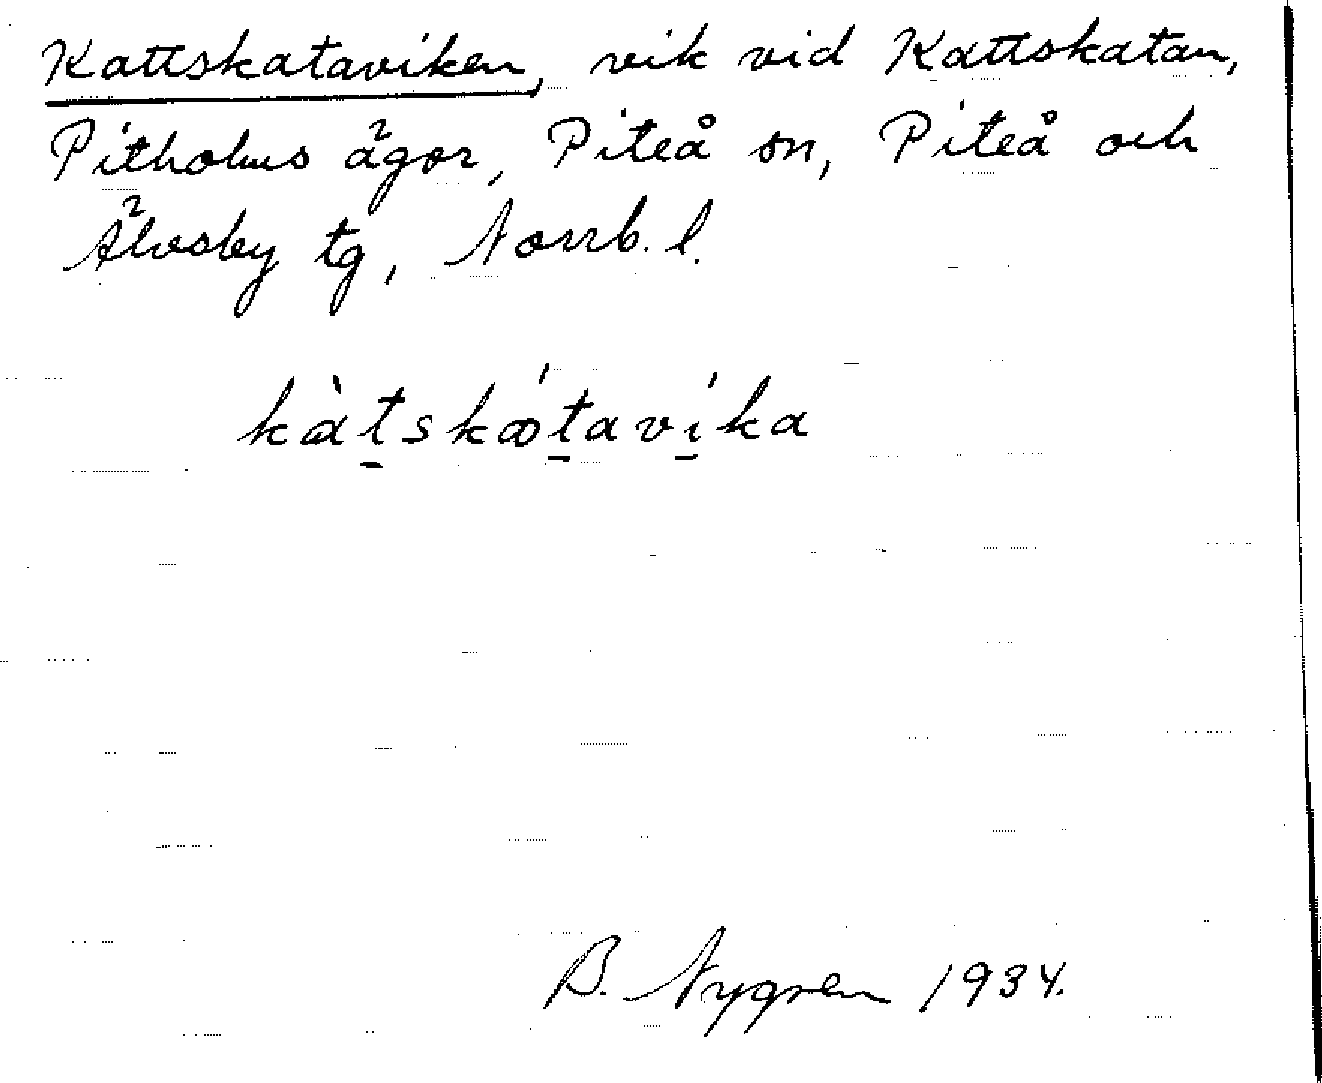 Kattskataviken, vik vid Kattskatan,
Pitholms ägor, Piteå sn, Piteå och
Älvsby tg, Norrb. l.
kàtskátavíka
B. Nygren 1934.